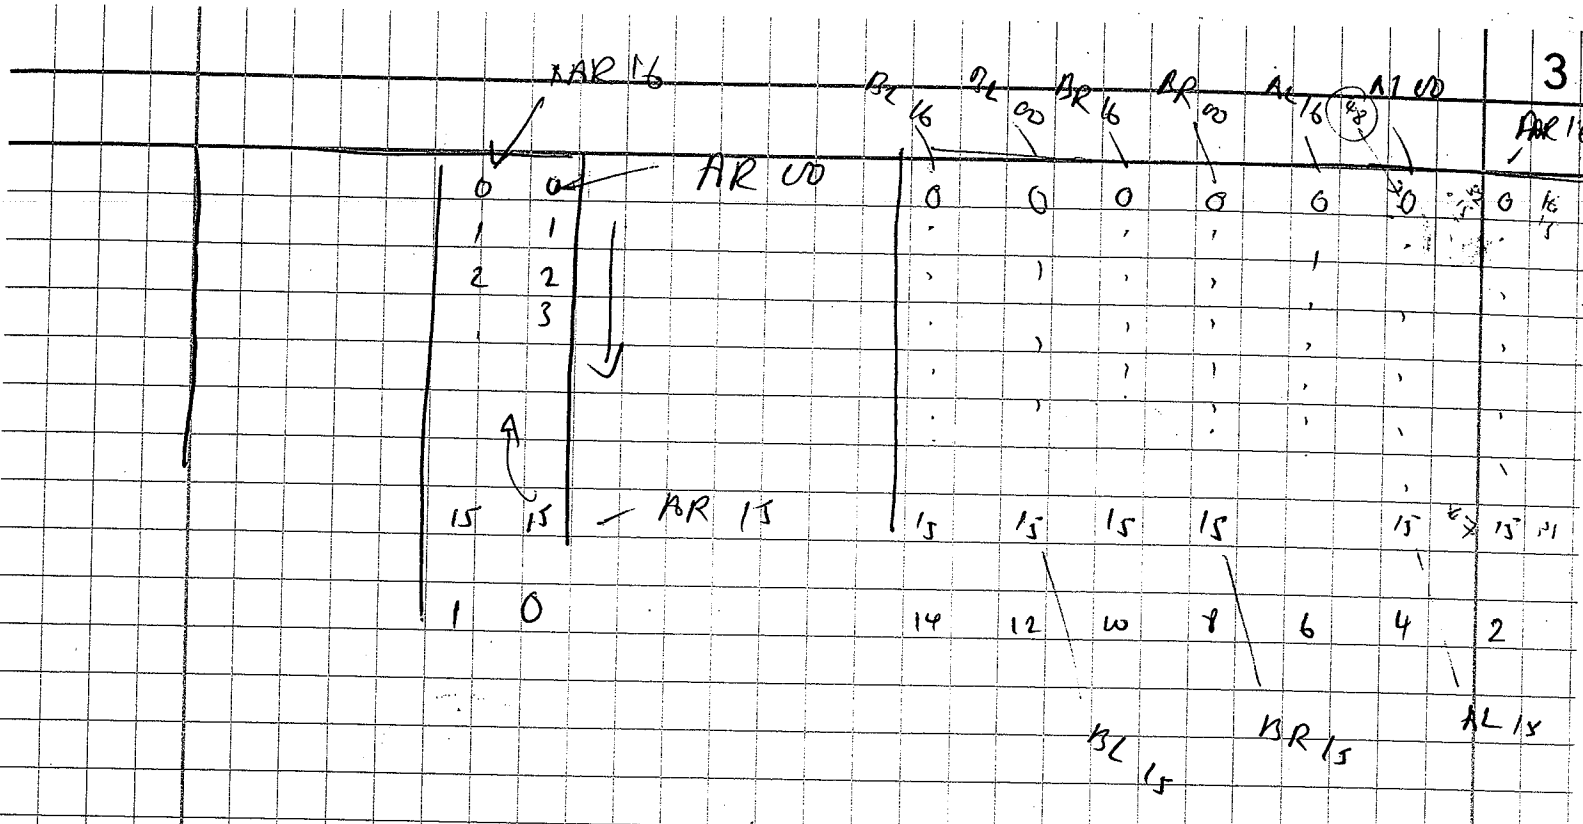 3
AR 16 BL 16 BL 00 BR 16 BR 00 AL 16 48 AL 00 AR 16
0 0 AR 00 0 0 0 0 0 0 0 16
1 1 15
2 2
3
15 15 AR 15 15 15 15 15 15 15
1 0 14 12 10 8 6 4 2
BL 15 BR 15 AL 15